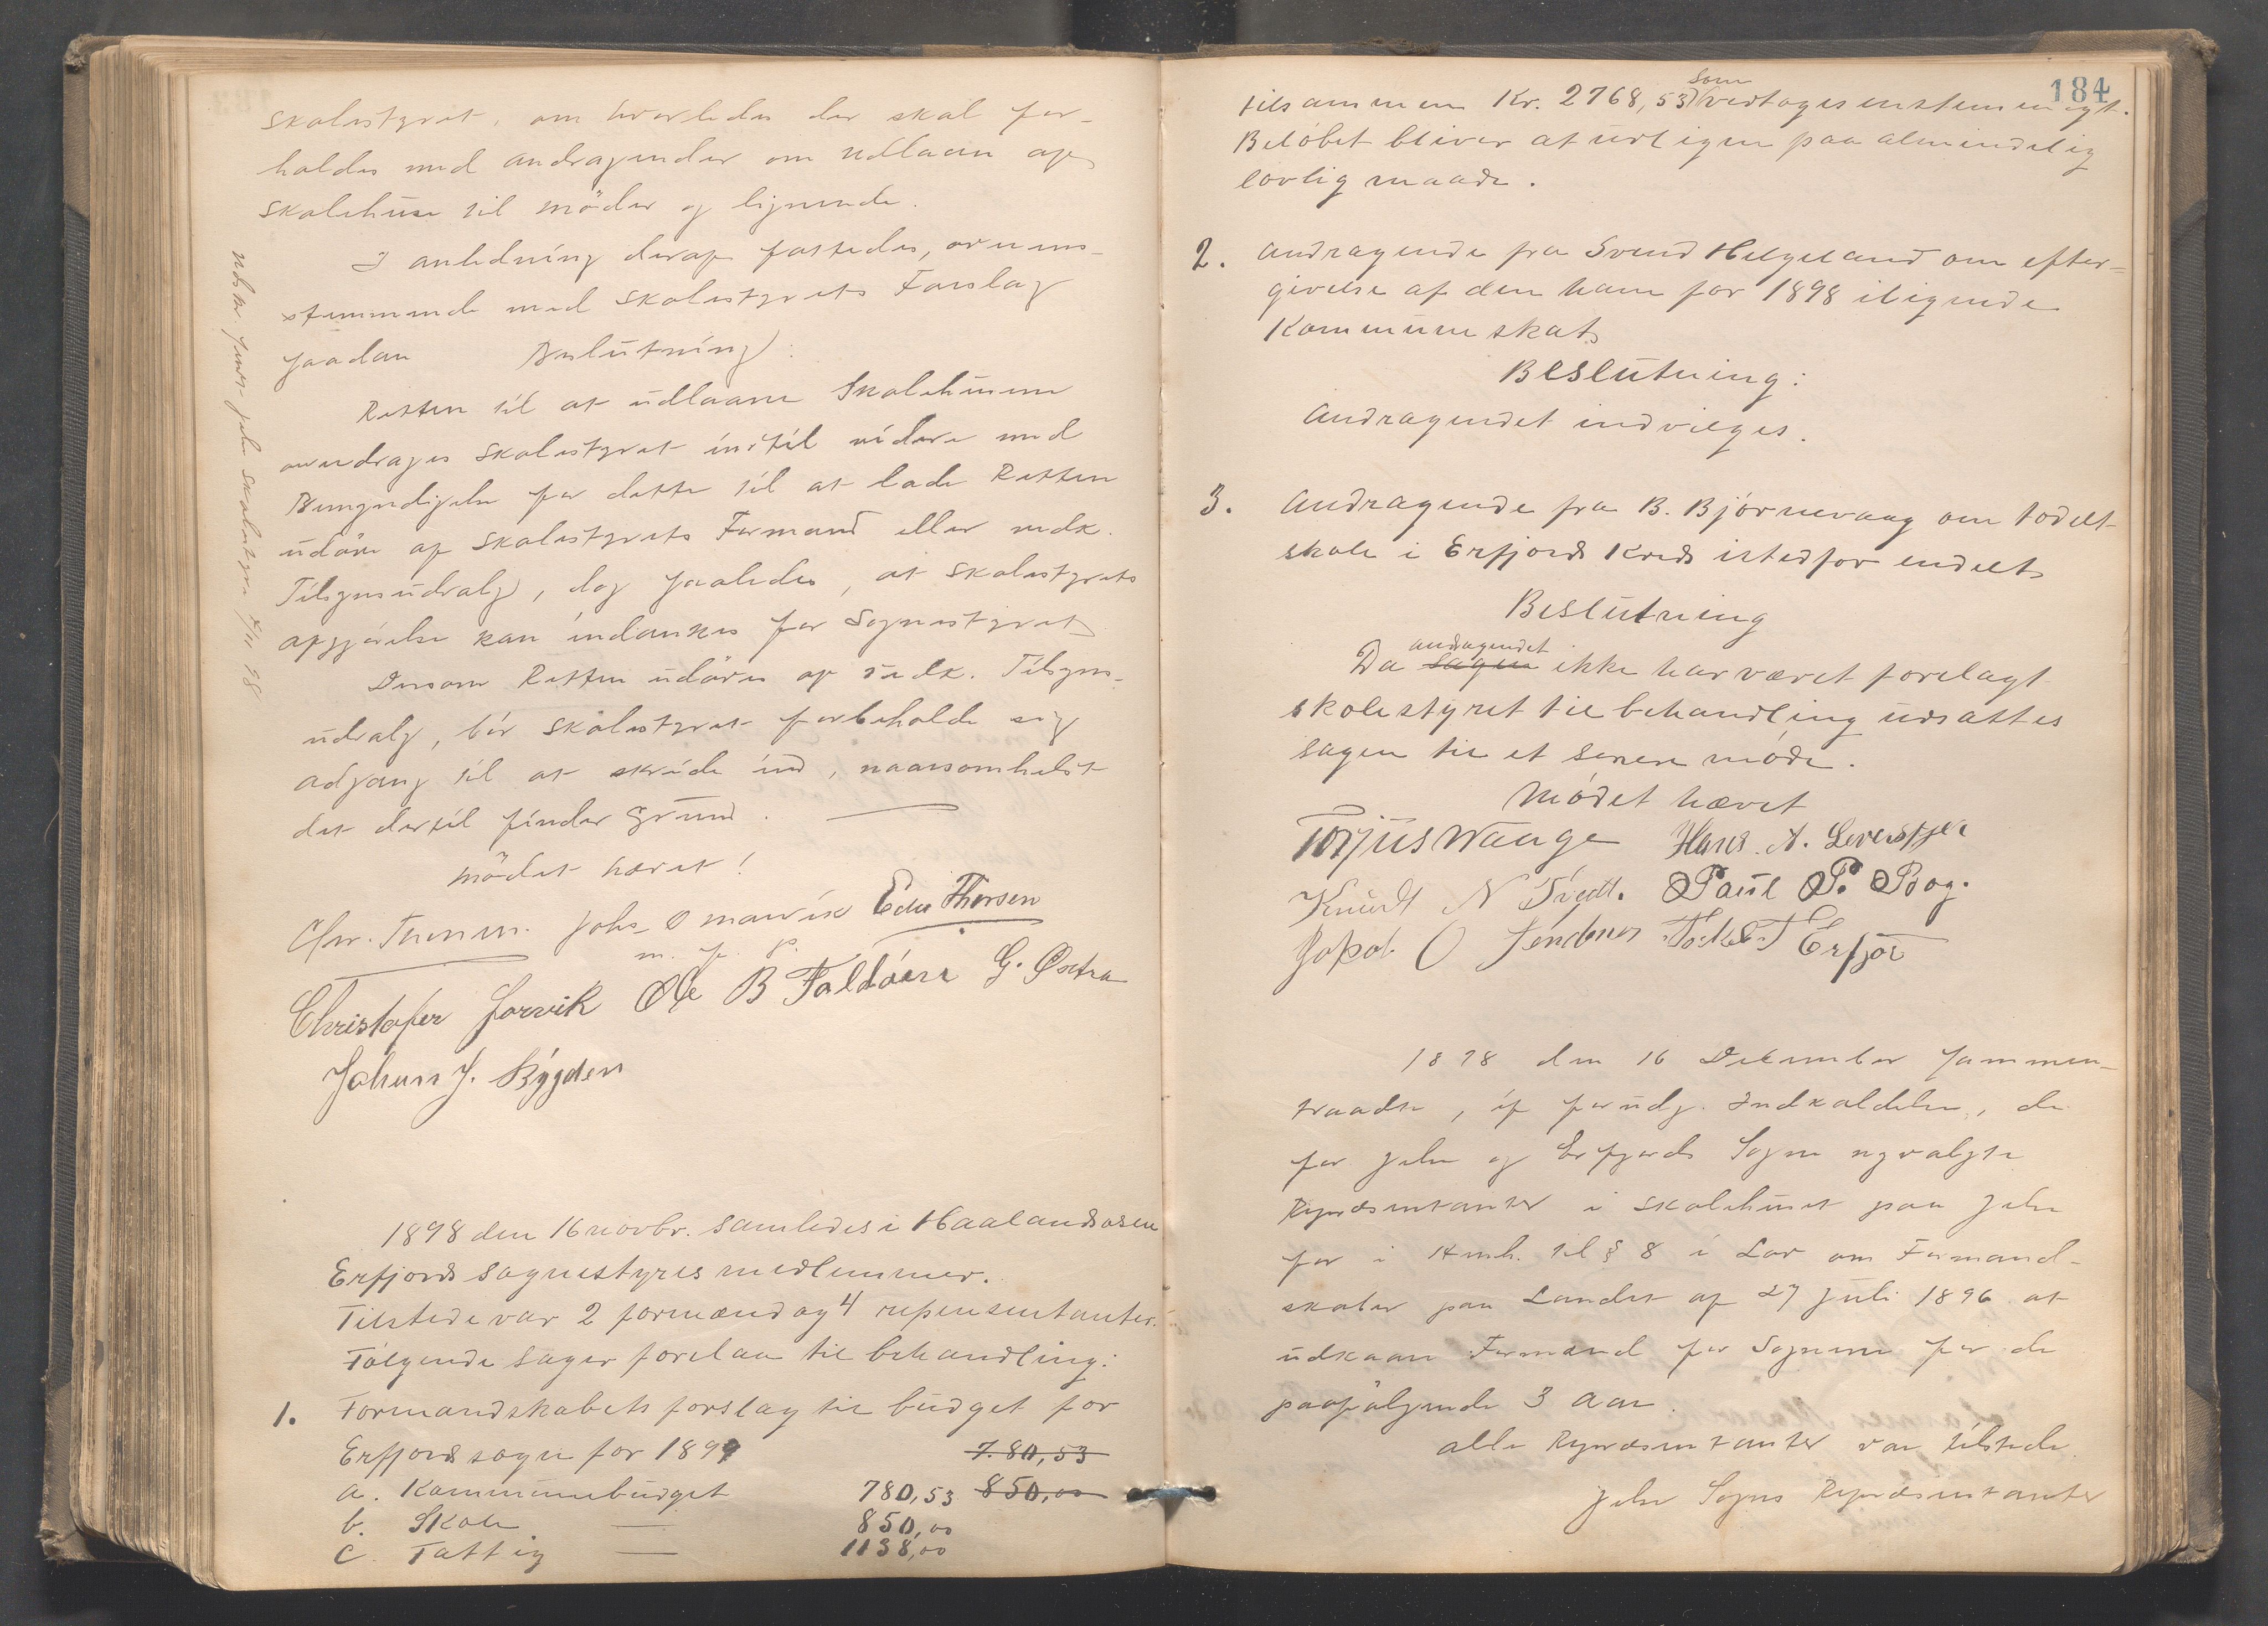 Skolestyret, om hvorledes der skal for-
holdes med Andragender om Udlaan af
Skolehuse til Møder og lignende.
I anledning deraf fattedes, overens-
stemmende med Skolestyrets Forslag
saadan Beslutning:
Retten til at udlaane Skolehusene
overdrages Skolestyret indtil videre med
Bemyndigelse for dette til at lade Retten
udøve af Skolestyrets Formand eller vedk.
Tilsynsudvalg, dog saaledes, at Skolestyrets
afgjørelse kan indankes for Sognestyret
Dersom Retten udøves af vedk. Tilsyns-
udvalg, bør Skolestyret forbeholde sig
adgang til at skride ind, naarsomhelst
det dertil finder Grund.
Mødet hævet!
Chr. Joh. Omarvik Edv Thorsen
m. f. P.
Christofer Jorvik Ole B Foldøen G. Østra
Johan J. Bygden
Udskr. sendt Jelse Skolestyre 98
1898 den 16 novbr. samledes i Haalandsosen
Erfjords sognestyres medlemmer.
Tilstede var 2 formænd og 4 repensentanter.
Følgende sager forelaa til behandling:
1. Formandskabets forslag til budget for
Erfjords sogn for 1899 7.80,53
a. Kommunebudget 780,53 850,00
b. Skole — 850,00
c. Fattig — 1138,00
184
tilsammen Kr. 2768,53 som vedtoges enstemmigt.
Beløbet bliver at udligne paa almindelig
lovlig maade.
2. Andragende fra Svend Helgeland om efter-
givelse af den ham for 1898 ilignede
Kommuneskat
Beslutning:
Andragendet indvilges.
3. Andragende fra B. Bjørnevaag om todelt
skole i Erfjords Kreds istedfor endelt
Beslutning
Da sagen andragendet ikke har været forelagt
skolestyret til behandling udsattes
sagen til et senere møde.
Mødet hævet
Torjus Waage Hans A.
Knudt N Tvedt. Paul P. Bog.
Jakob O Erfjor
1898 den 16 December sammen-
traadte, if. forudg. Indkaldelse, de
for Jelse og Erfjords Sogn nyvalgte
Repræsentanter i Skolehuset paa Jelse
for i Henh. til § 8 i Lov om Formand-
skaber paa Landet af 27 Juli 1896 at
udkaare Formænd for Sognene for de
paafølgende 3 Aar.
Alle Repræsentanter var tilstede.
Jelse Sogns Repræsentanter